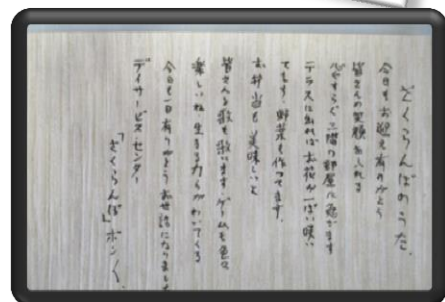 さくらんぼのうた
今日もお迎え有りがとう
皆さんの笑顔あふれる
心やすらぐ二間の部屋に居ます
テラスに出ればお花が一ぱい咲い
てます。野菜も作ってます。
お弁当も美味しいよ
皆さんと歌も歌います ゲームも色々
楽しいね 生きる力がわいてくる
今日も一日有りがとう お世話になりました
デイサービスセンター
「さくらんぼ」ポンく